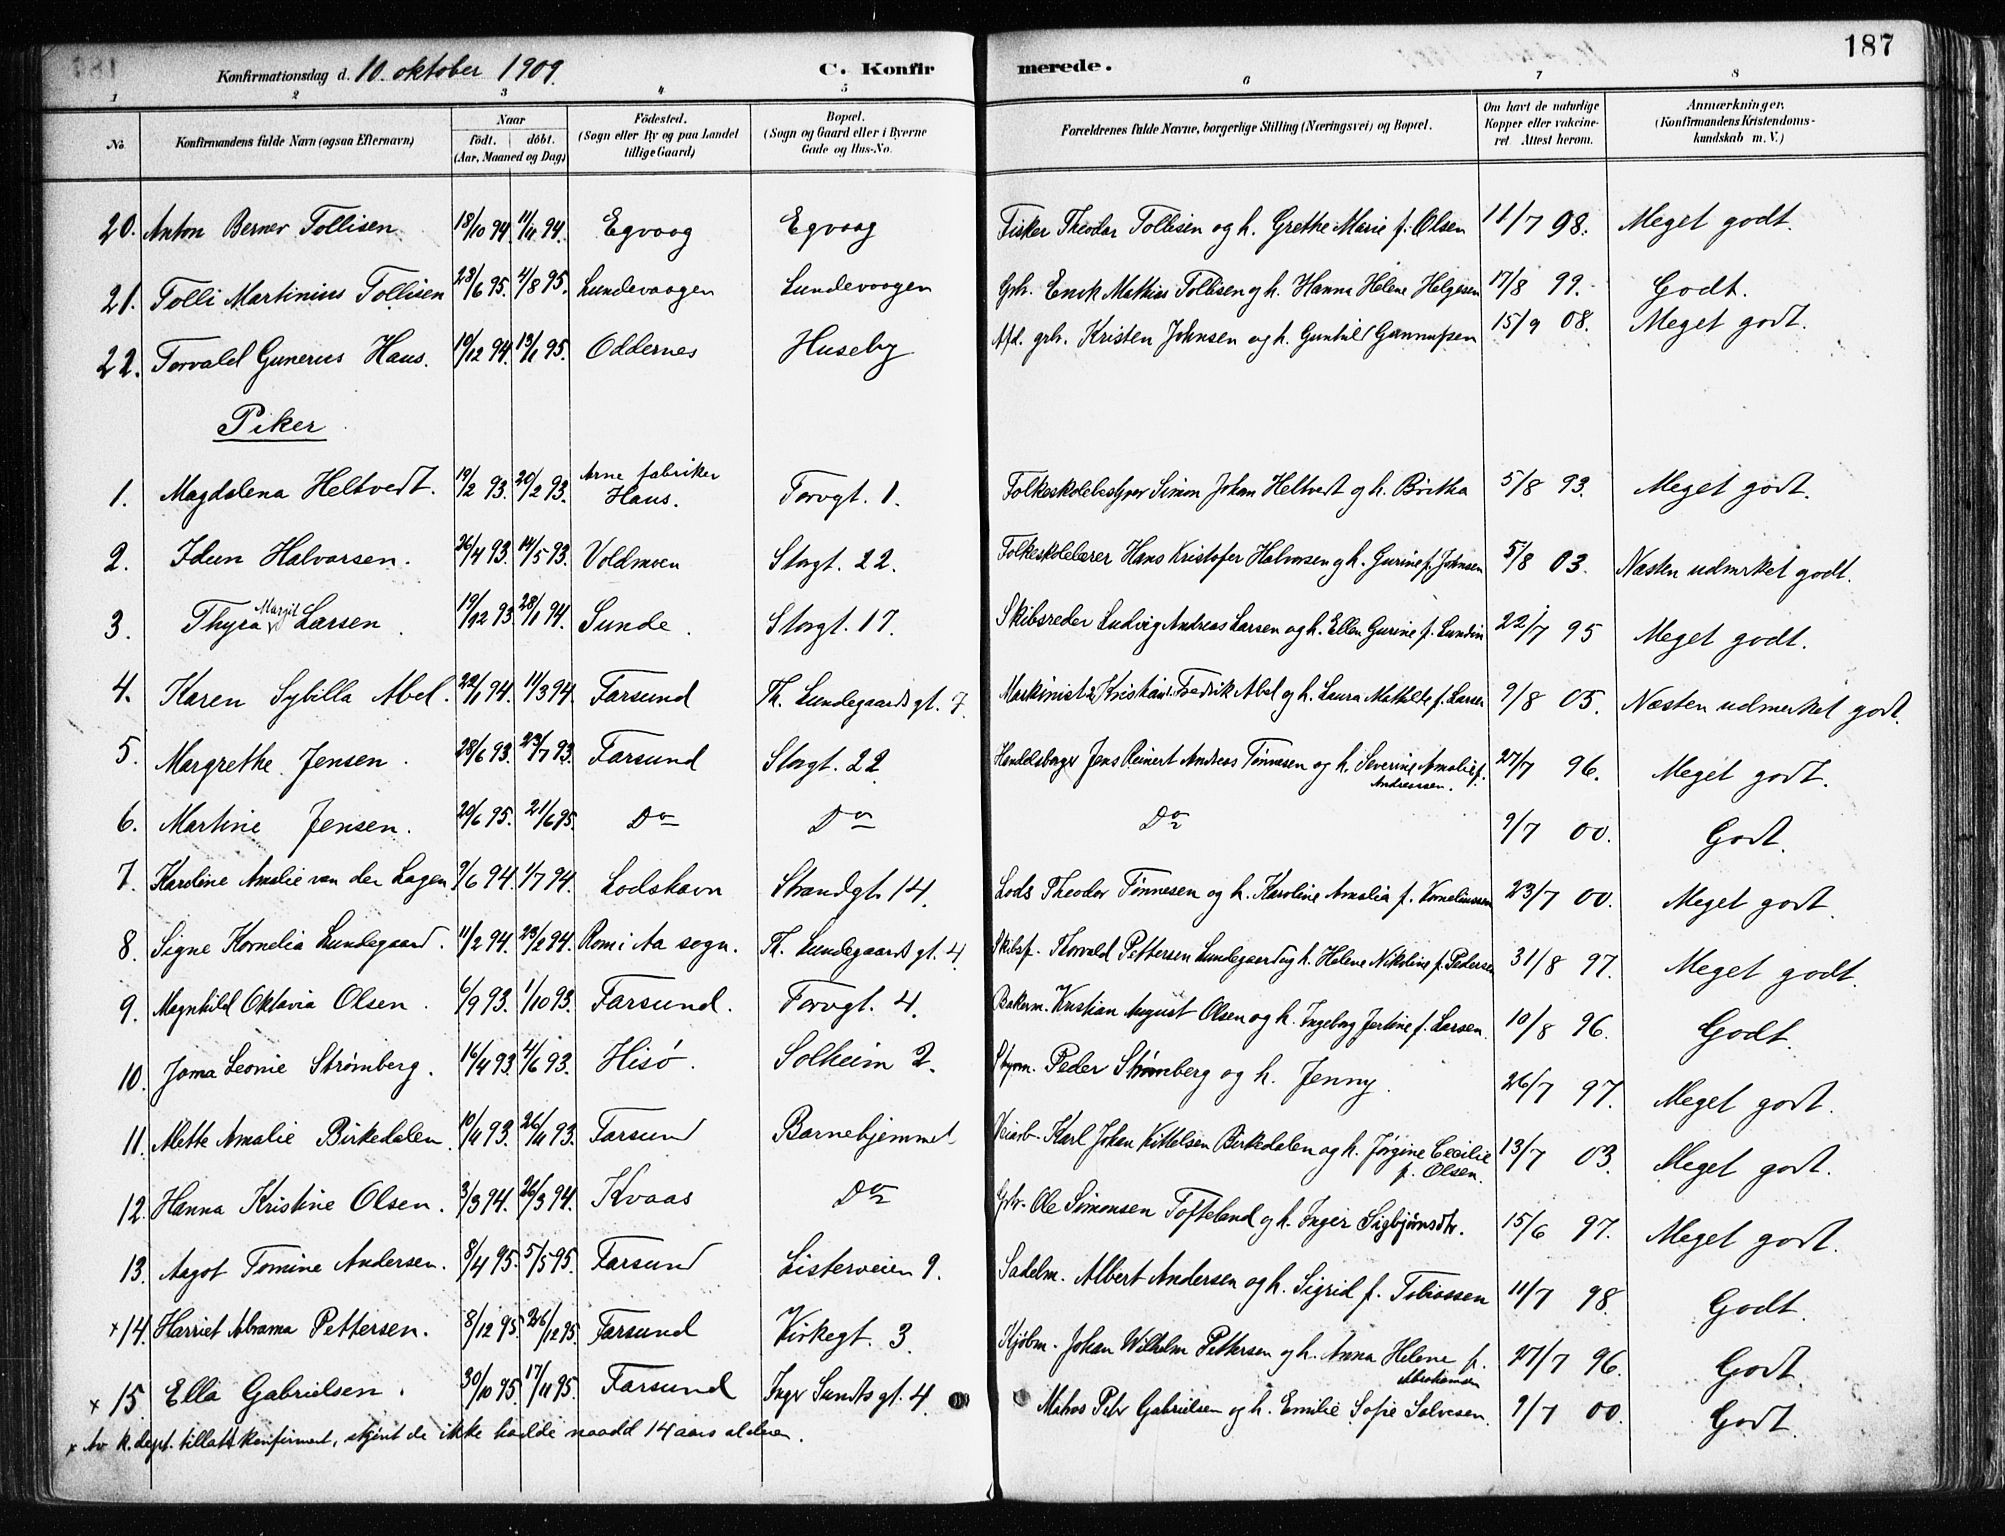 187
Konfirmationsdag d. 10. oktober 1909. C. Konfirmerede.
1 2 3 4 5 6 7 8
No. Konfirmandens fulde Navn (ogsaa Efternavn) Naar født. døbt. (Aar, Maaned og Dag) Fødested. (Sogn eller By og paa Landet tillige Gaard) Bopæl. (Sogn og Gaard eller i Byerne Gade og Hus-No. Forældrenes fulde Navne, borgerlige Stilling (Næringsvei) og Bopæl. Om havt de naturlige Kopper eller vakcineret Attest herom. Anmærkninger. (Konfirmandens Kristendomskundskab m. V.)
20. Anton Berner Tollisen 18/10 94. 11/11 94. Egvaag Egvaag Fisker Theodor Tollisen og h. Grethe Marie f. Olsen 11/7 98. Meget godt.
21. Tolli Martinius Tollisen 23/6 95. 4/8 95. Lundevaagen Lundevaagen Grb. Enok Mathias Tollisen og h. Hanna Helene Helgesen 17/8 99. Godt.
22. Torvald Gunerus Haus. 19/12 94. 13/1 95. Oddernes Huseby Afd. grb. Kristen Johnsen og h. Gunhild 15/9 08. Meget godt.
Piker
1. Magdalena Heltvedt. 19/2 93. 20/2 93. Arne fabriker Haus. Torvgt. 1. Folkeskolebestyrer Simon Johan Heltvedt og h. Britha 5/8 93. Meget godt.
2. Idun Halvorsen. 26/4 93. 14/5 93. Voldmoen Storgt. 22. Folkeskolelærer Hans Kristofer Halvorsen og h. Gurine f. Johnsen 5/8 03. Næsten udmrket godt.
3. Thyra Margit Larsen 19/12 93. 28/1 94. Sunde. Storgt. 17. Skibsreder Ludvig Andreas Larsen og h. Ellen Gurine f. Lundin 22/7 95 Meget godt.
4. Karen Sybilla Abel. 22/1 94. 11/3 94. Farsund Th. Lundegaards gt. 7. Maskinist Kristian Fredrik Abel og h. Laura Mathilde f. Larsen 9/8 05. Næsten udmerket godt.
5. Margrethe Jensen. 28/6 93. 23/7 93. Farsund Storgt. 22 Handelsborger Jens Reinert Andreas Tønnesen og h. Severine Amalie f. Andreassen. 27/7 96. Meget godt.
6. Martine Jensen. 20/6 95. 21/6 95. Do Do Do 9/7 00. Godt.
7. Karoline Amalie van der Lagen 9/6 94. 1/7 94. Lodshavn Strandgt. 14. Lods Theodor Tønnesen og h. Karoline Amalia f. Korneliussen 23/7 00. Meget godt.
8. Signe Kornelia Lundegaard. 11/2 94. 23/2 94. Rom i Aa sogn. Th. Lundegaards gt. 4. Skibsf. Thorvald Pettersen Lundegaard og h. Helene Nikoline f. Pedersen 31/8 97. Meget godt.
9. Magnhild Oktavia Olsen. 6/9 93. 1/10 93. Farsund. Torvgt. 4. Bakerm. Kristian August Olsen og h. Ingeborg Jertine f. Larsen. 10/8 96. Godt.
10. Joma Leonie Strømberg. 16/4 93. 4/6 93. Hisø. Solheim 2. Styrm. Peder Strømberg og h. Jenny. 26/7 97. Meget godt.
11. Mette Amalie Birkedalen. 10/4 93. 26/4 93. Farsund Barnehjemmet Veiarb. Karl Johan Kittelsen Birkedalen og h. Jørgine Cecilie f. Olsen. 13/7 03. Meget godt.
12. Hanna Kristine Olsen. 3/3 94. 26/3 94. Kvaas Do Grb. Ole Simonsen Tofteland og h. Inger Sigbjørnsdtr. 15/6 97. Meget godt.
13. Aagot Tomine Andersen. 8/4 95. 5/5 95. Farsund Listerveien 9. Sadelm. Albert Andersen og h. Sigrid f. Tobiassen 11/7 98. Godt.
x 14. Harriet Abrama Pettersen. 8/12 95. 26/12 95. Farsund Kirkegt. 3. Kjøbm. Johan Wilhelm Pettersen og h. Anna Helene f. Abrahamsen 27/7 96. Godt.
x 15. Ella Gabrielsen. 30/10 95. 17/11 95. Farsund Inger Sundts gt. 4 Matros Peter Gabrielsen og h. Emilie Sofie Salvesen. 9/7 00. Godt.
x Av k. dept. tillatt konfirmert, skjønt de ikke hadde naadd 14 aars alderen.